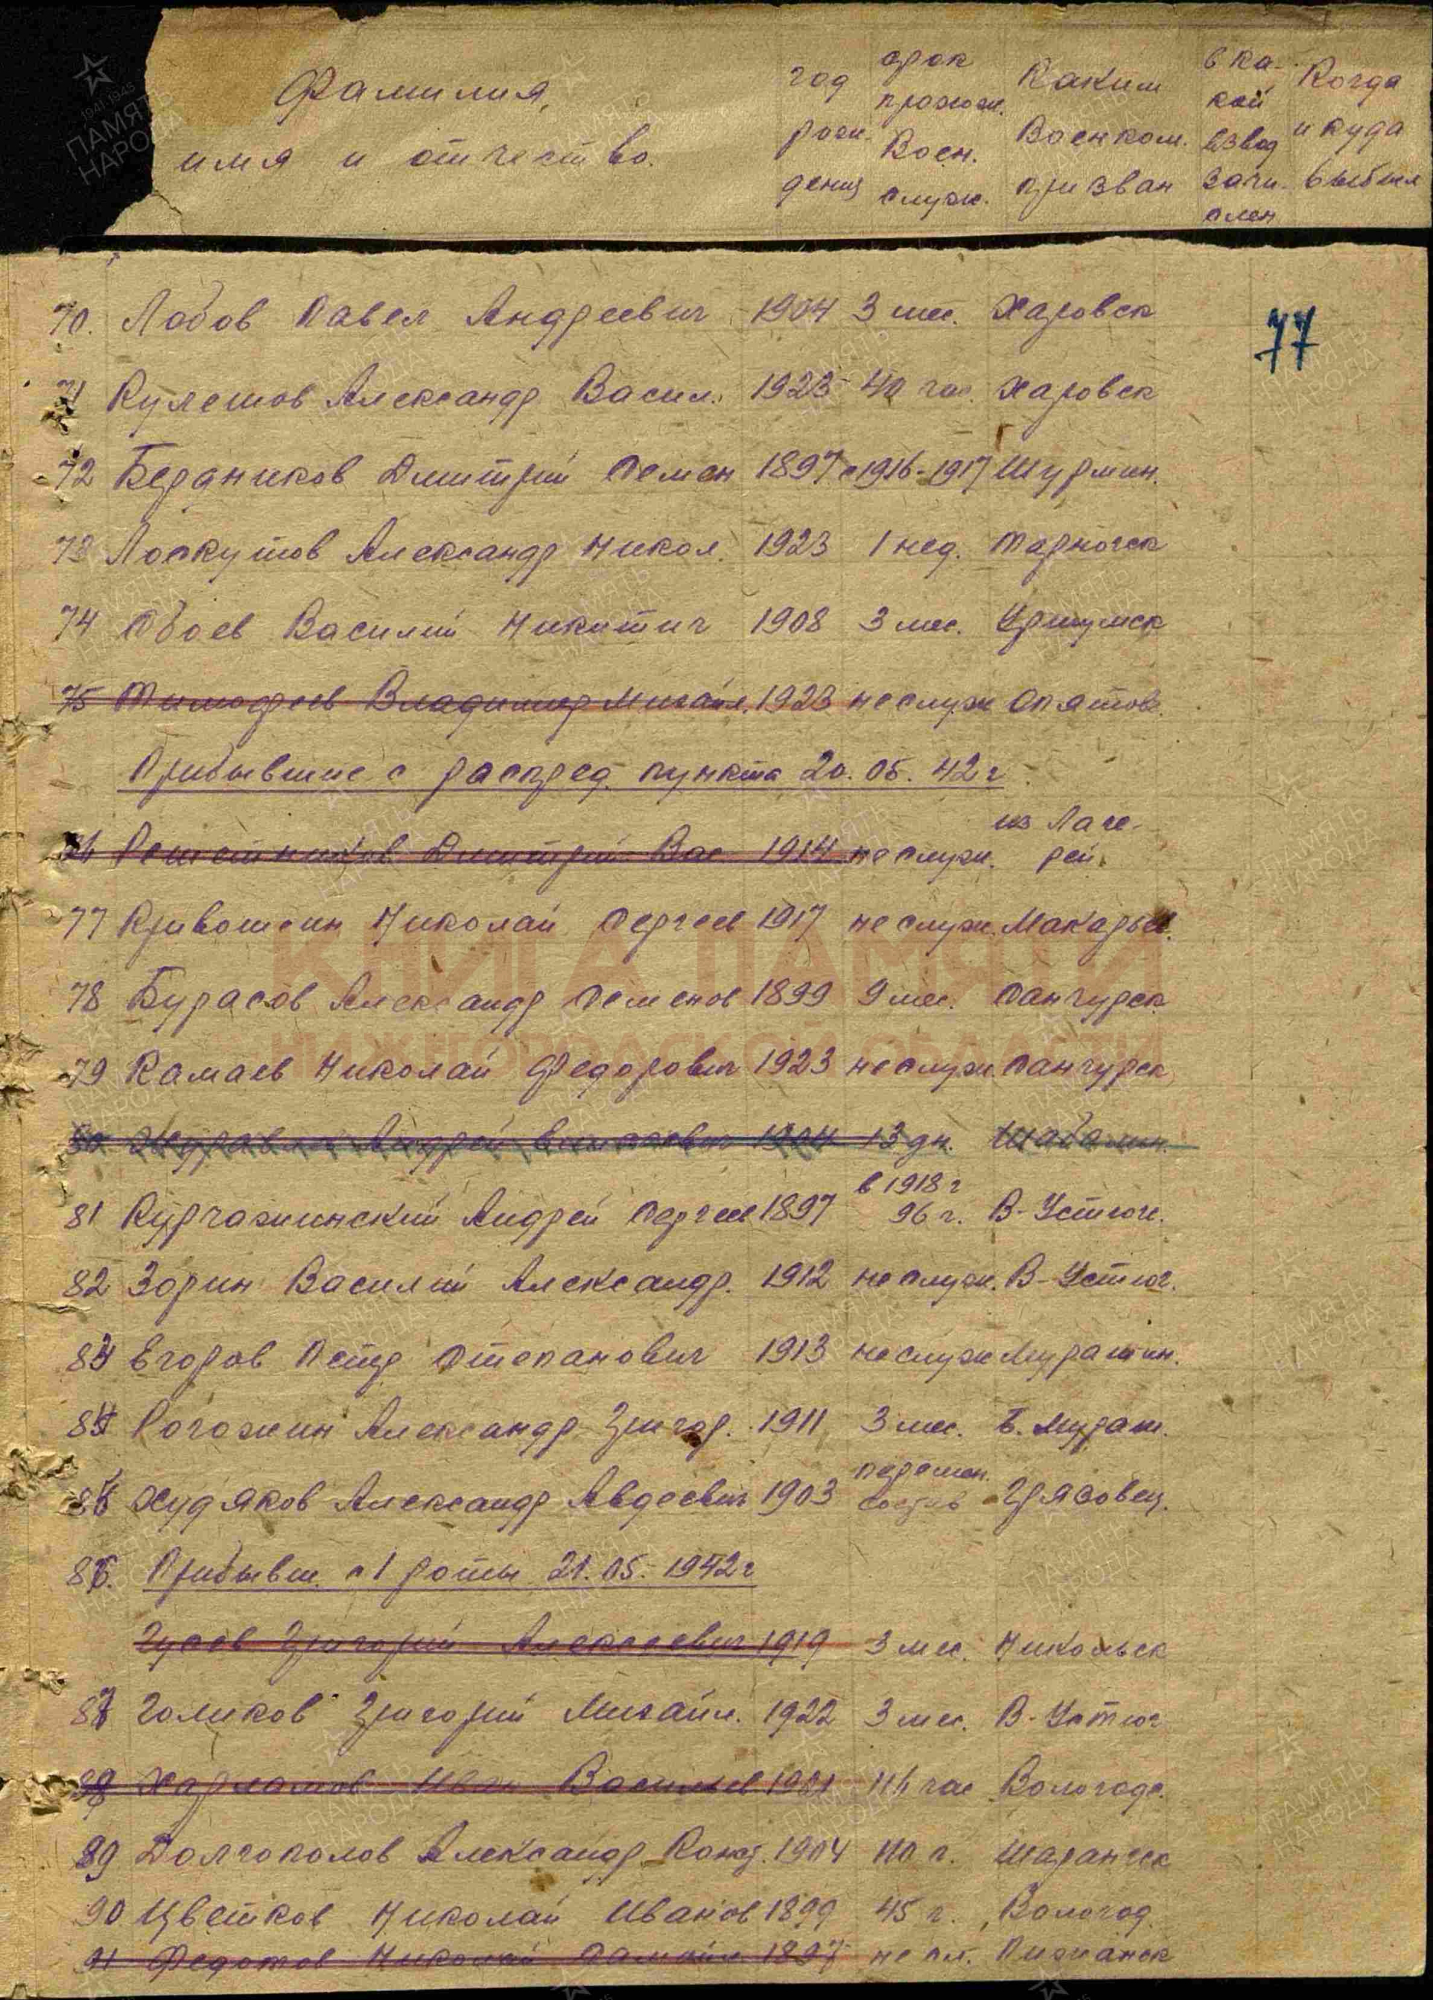 Фамилия, имя и отчество. год рождения срок прохож. Воен. служ. Каким Военком. призван в какой взвод зачислен Когда и куда выбыл
77
70. Лобов Павел Андреевич 1904 3 мес. Харовск
71 Кулешов Александр Васил. 1923 40 час. Харовск
72 Бердников Дмитрий Семен 1897 с 1916-1917 Шурмин.
73 Лоскутов Александр Никол. 1923 1 нед. Тарногск
74 Обоев Василий Никитич 1908 3 мес. Уржумск
75 Тимофеев Владимир Михайл. 1923 не служ Опятов.
Прибывшие с распред. пункта 20.05.42 г
76 Решетников Дмитрий Вас 1914 не служ. из Лагерей
77 Кривошеин Николай Сергеев 1917 не служ. Макарьев.
78 Бурасов Александр Семенов 1899 9 мес. Санчурск.
79 Камаев Николай Федорович 1923 не служ Санчурск
80 Андрей 1904 13 дн. Шабалин.
81 Андрей Сергеев 1897 в 1918 г 96 г. В-Устюг.
82 Зорин Василий Александр. 1912 не служ. В-Устюг.
83 Егоров Петр Степанович 1913 не служ Мурашин.
84 Рогожин Александр Григор. 1911 3 мес. Б. Мураш.
85 Худяков Александр Авдеевич 1903 перемен. состав Грязовец.
86. Прибывш. с 1 роты 21.05.1942 г
Гусев Григорий Алексеевич 1919 3 мес. Никольск
87 Голиков Григорий Михайл. 1922 3 мес. В-Устюг
88 Харламов Иван Васильев 1901 116 час Вологодс.
89 Долгополов Александр Конст. 1904 110 г. Шарангск
90 Цветков Николай Иванов 1899 45 г. Вологод.
91 Федотов Николай Самойл 1897 не сл. Пижанск
КНИГА ПАМЯТИ
НИЖЕГОРОДСКОЙ ОБЛАСТИ
ПАМЯТЬ НАРОДА